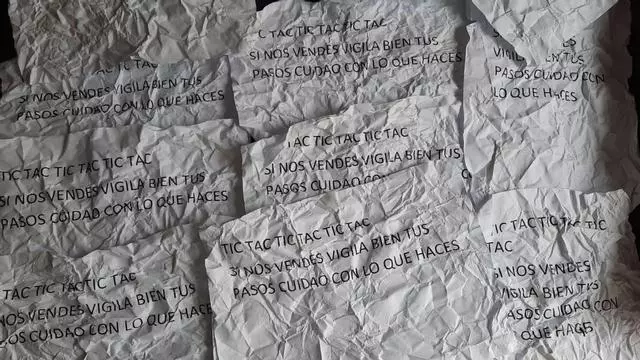 TIC TAC
SI NOS VENDES VIGILA BIEN TUS
PASOS CUIDAO CON LO QUE HACES
C TAC TIC TAC TIC TAC
SI NOS VENDES VIGILA BIEN TUS
PASOS CUIDAO CON LO QUE HACES
TUS
PASOS CUIDAO CON
LO QUE HACES
TIC TAC TIC TAC TIC TAC
SI NOS VENDES VIGILA BIEN TUS
PASOS CUIDAO CON LO QUE HACES
TAC TIC TAC TIC TAC
SI NOS VENDES VIGILA BIEN TUS
PASOS CUIDAO CON
TAC TIC TAC TIC TAC
NOS VENDES VIGILA BIEN TUS
OS CUIDAO CON LO QUE HACE
TIC TAC TIC TAC TIC TAC
SI NOS VENDES VIGILA BIEN TUS
PASOS CUIDAO CON LO QUE HACES
IC TAC TIC TAC TIC
TAC
SI NOS VENDES
VIGILA BIEN TUS
ASOS CUIDAO CON
QUE HACES